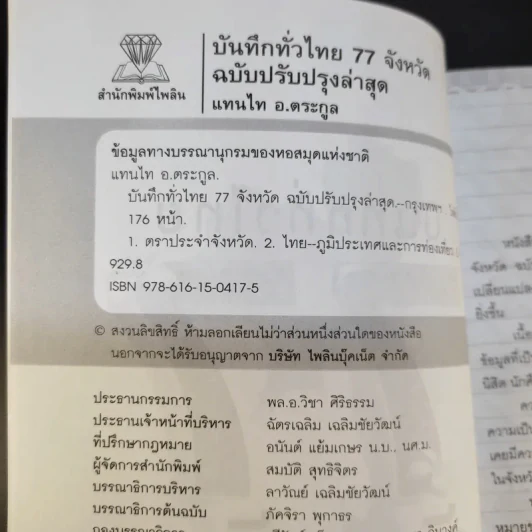 สำนักพิมพ์ไพลิน
บันทึกทั่วไทย 77 จังหวัด
ฉบับปรับปรุงล่าสุด
แทนไท อ.ตระกูล
ข้อมูลทางบรรณานุกรมของหอสมุดแห่งชาติ
แทนไท อ.ตระกูล.
บันทึกทั่วไทย 77 จังหวัด ฉบับปรับปรุงล่าสุด.--กรุงเทพฯ
176 หน้า.
1. ตราประจำจังหวัด. 2. ไทย--ภูมิประเทศและการท่องเที่ยว
929.8
ISBN 978-616-15-0417-5
© สงวนลิขสิทธิ์ ห้ามลอกเลียนไม่ว่าส่วนหนึ่งส่วนใดของหนังสือ
นอกจากจะได้รับอนุญาตจาก บริษัท ไพลินบุ๊คเน็ต จำกัด
ประธานกรรมการ พล.อ.วิชา ศิริธรรม
ประธานเจ้าหน้าที่บริหาร ฉัตรเฉลิม เฉลิมชัยวัฒน์
ที่ปรึกษากฎหมาย อนันต์ แย้มเกษร น.บ., นศ.ม.
ผู้จัดการสำนักพิมพ์ สมบัติ สุทธิจิตร
บรรณาธิการบริหาร ลาวัณย์ เฉลิมชัยวัฒน์
บรรณาธิการต้นฉบับ ภัคจิรา พุกาธร
กองบรรณาธิการ
หนังสือ
จังหวัด
เปลี่ยนแปล
ยิ่งขึ้น
ข้อมูลที่เป็
นิสิต นักศึ
ความเป็น
เคยมีคว
ในจังหวั
หมายธุ